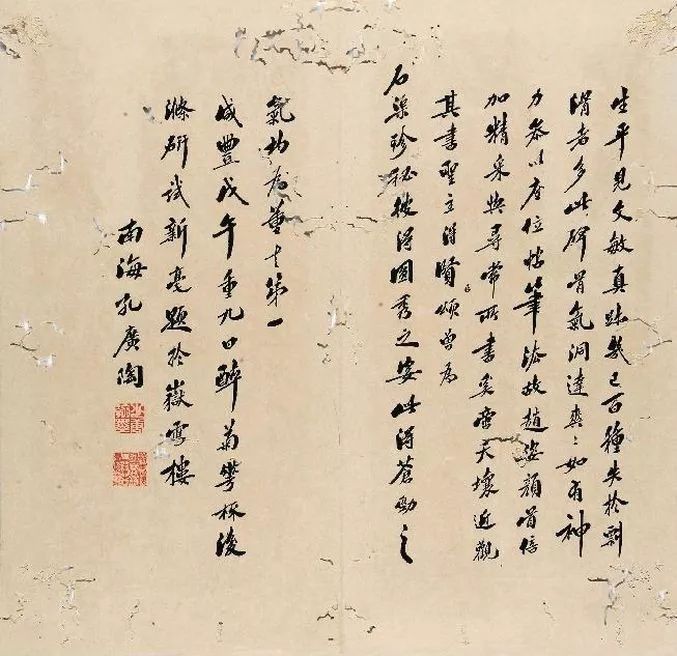 生平見文敏真跡幾已百種失於剽
滑者多此碑骨氣洞達爽〻如有神
力參以座位帖筆法故趙姿顏骨倍
加精采與尋常所書奚啻天壤近觀
其書聖主得賢頌曾為
石渠珍秘彼得圓秀之姿此得蒼勁之
氣均為第一
咸豐戊午重九日醉菊杯後
滌研試新毫題於嶽雪樓
南海孔廣陶